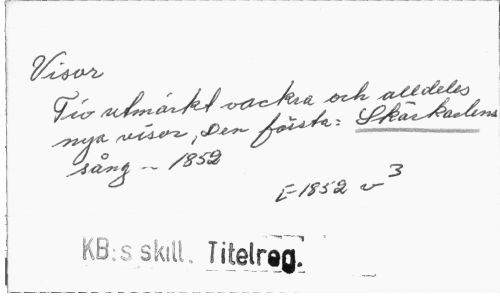 Visor
Tio utmärkt vackra och alldeles
nya visor, Den första: Skärkarlens
sång -- 1852
E 1852 v 3
KB:s skill. Titelreg.